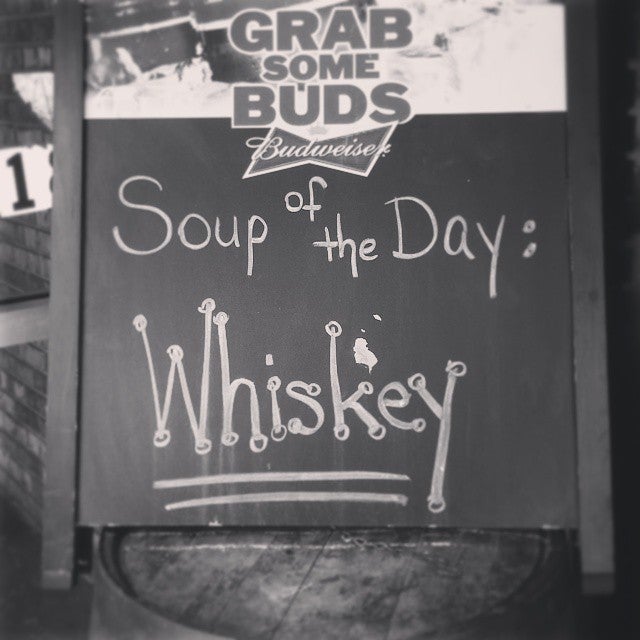 GRAB
SOME
BUDS
Budweiser
1
Soup of the Day:
Whiskey